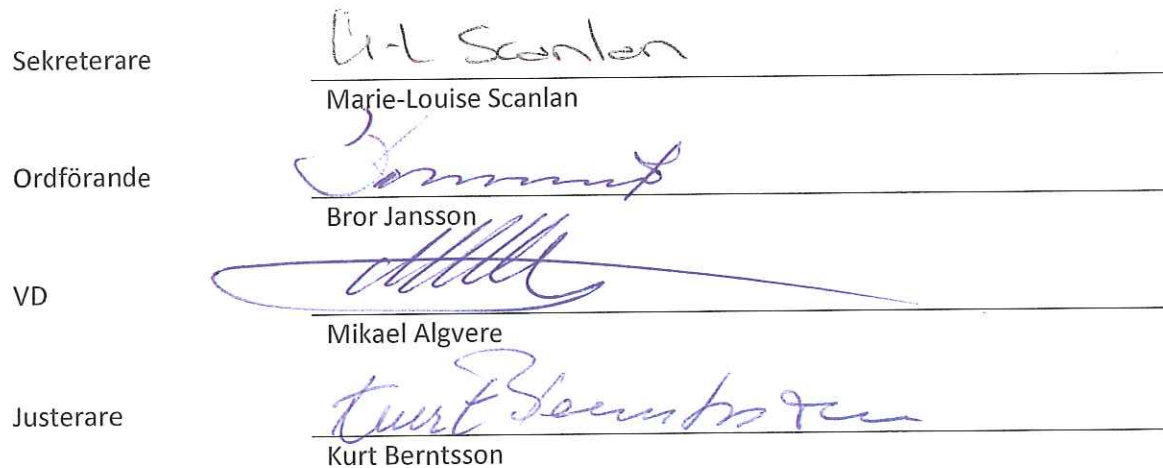 Sekreterare
M-L Scanlan
Marie-Louise Scanlan
Ordförande
Bror Jansson
VD
Mikael Algvere
Justerare
Kurt Berntsson
Kurt Berntsson